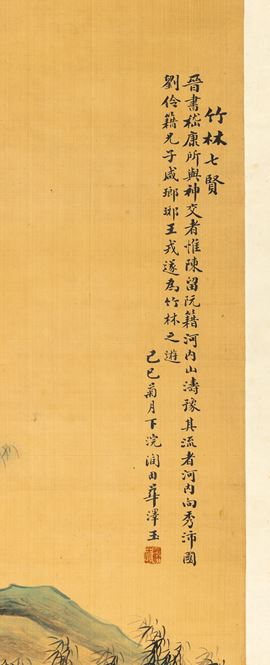 竹林七賢
晉書嵇康所與神交者惟陳留阮籍河内山濤豫其流者河内向秀沛國
劉伶籍兄子咸瑯琊王戎遂為竹林之遊
己巳菊月下浣潤田華澤玉